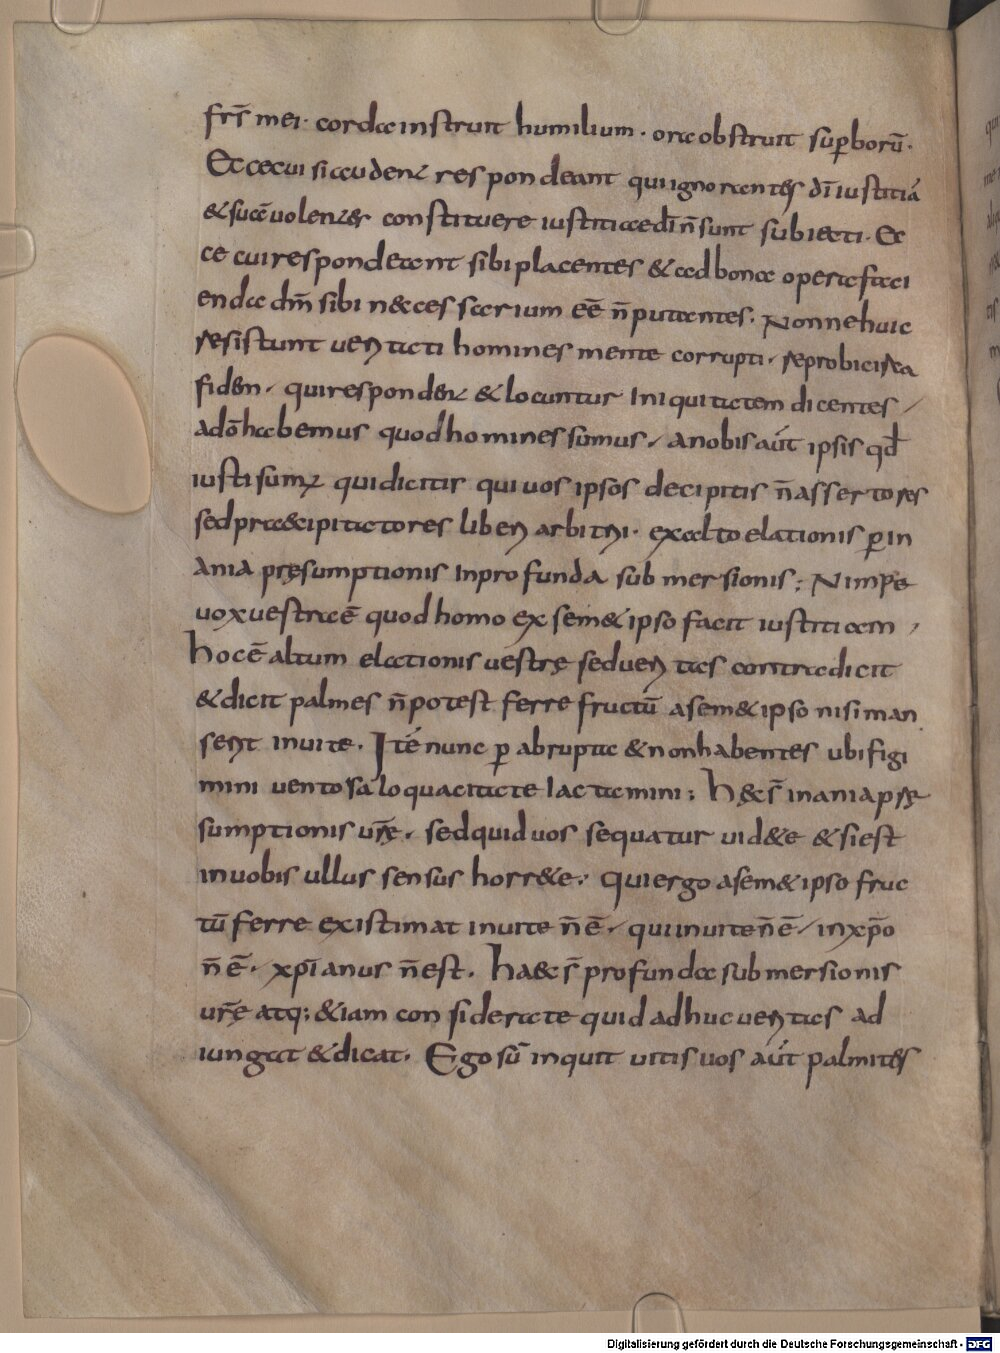 fr̄s mei· corda instruit humilium· ora obstruit sup̱borū·
Ecce cui si audent respondeant qui ignorantes dī iustitiā
& suā volentes constituere iustitiae dī n̄ sunt subiecti· Ec
ce cui respondeant sibi placentes & ad bona opera faci
enda dm̄ sibi n&cessarium eē n̄ putantes. Nonne huic
resistunt ueritati homines mente corrupti· reprobi circa
fidem· qui respondent & locuntur Iniquitatem dicentes
adō habemus quod homines sumus, a nobis aūt ipsis qđ
iusti sumus qui dicitis qui uos ipsos decipitis n̄ assertores
sed praecipitatores liberi arbitrii· ex alto elationis p̱ in
ania pręsumptionis In profunda submersionis; Nimpe
uox uestra ē quod homo ex sem& ipso facit iustitiam,
hoc ē altum elationis uestrę sed ueritas contradicit
& dicit palmes n̄ potest ferre fructū a sem& ipso nisi man
serit in uite· Itē nunc p̱ abrupta & non habentes ubi figi
mini uentosa loquacitate Iactamini; hęc s̄ inania prę
sumptionis ur̄ę· sed quid uos sequatur uid&e & si est
in uobis ullus sensus horr&e· qui ergo a sem& ipso fruc
tū ferre existimat in uite n̄ ē, qui in uite n̄ ē, in xp̄o
n̄ ē, xp̄ianus n̄ est. haec s̄ profunda submersionis
ur̄ę atq; &iam considerate quid adhuc ueritas ad
iungat & dicat· Ego sū inquit uitis uos aūt palmites
Digitalisierung gefördert durch die Deutsche Forschungsgemeinschaft - DFG